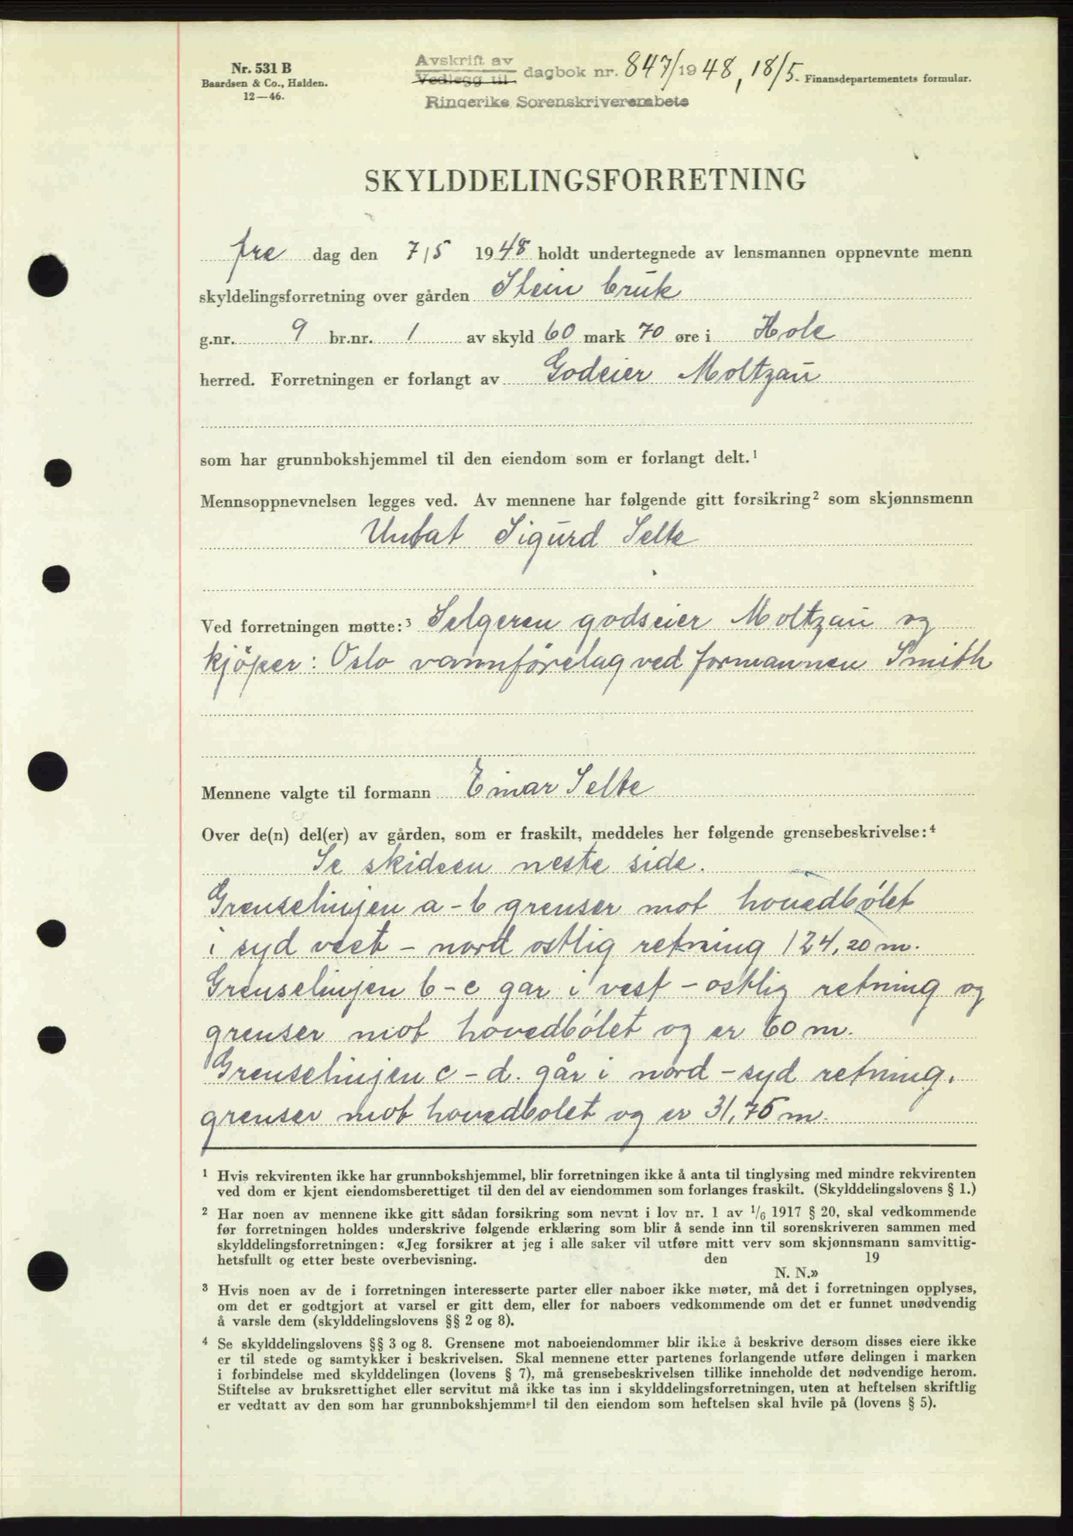 Nr. 531 B
Baardsen & Co., Halden.
12—46.
Avskrift av
Vedlegg til dagbok nr. 847/1948, 18/5. Finansdepartementets formular.
Ringerike Sorenskriverembete
SKYLDDELINGSFORRETNING
fre dag den 7/5 1948 holdt undertegnede av lensmannen oppnevnte menn
skyldelingsforretning over gården Stein bruk
g.nr. 9 br.nr. 1 av skyld 60 mark 70 øre i Hole
herred. Forretningen er forlangt av Godeier Moltzau
som har grunnbokshjemmel til den eiendom som er forlangt delt.¹
Mennsoppnevnelsen legges ved. Av mennene har følgende gitt forsikring² som skjønnsmenn
Untat Sigurd Selte
Ved forretningen møtte:³ Selgeren godseier Moltzau og
kjöper: Oslo vannförelag ved formannen Smith
Mennene valgte til formann Einar Selte
Over de(n) del(er) av gården, som er fraskilt, meddeles her følgende grensebeskrivelse:⁴
Se skidsen neste side.
Grenselinjen a-b grenser mot hovedbølet
i syd vest - nord ostlig retning 124,20 m.
Grenselinjen b-c gar i vest - ostlig retning og
grenser mot hovedbölet og er 60 m.
Grenselinjen c-d. går i nord - syd retning.
grenser mot hovedbolet og er 31,75 m.
¹ Hvis rekvirenten ikke har grunnbokshjemmel, blir forretningen ikke å anta til tinglysing med mindre rekvirenten
ved dom er kjent eiendomsberettiget til den del av eiendommen som forlanges fraskilt. (Skylddelingslovens § 1.)
² Har noen av mennene ikke gitt sådan forsikring som nevnt i lov nr. 1 av 1/6 1917 § 20, skal vedkommende
før forretningen holdes underskrive følgende erklæring som blir å sende inn til sorenskriveren sammen med
skylddelingsforretningen: «Jeg forsikrer at jeg i alle saker vil utføre mitt verv som skjønnsmann samvittig-
hetsfullt og etter beste overbevisning. den 19
N. N.»
³ Hvis noen av de i forretningen interesserte parter eller naboer ikke møter, må det i forretningen opplyses,
om det er godtgjort at varsel er gitt dem, eller for naboers vedkommende om det er funnet unødvendig
å varsle dem (skylddelingslovens §§ 2 og 8).
⁴ Se skylddelingslovens §§ 3 og 8. Grensene mot naboeiendommer blir ikke å beskrive dersom disses eiere ikke
er til stede og samtykker i beskrivelsen. Skal mennene etter partenes forlangende utføre delingen i marken
i forbindelse med skylddelingen (lovens § 7), må grensebeskrivelsen tillike inneholde det nødvendige herom.
Stiftelse av bruksrettighet eller servitut må ikke tas inn i skylddelingsforretningen, uten at heftelsen skriftlig
er vedtatt av den som har grunnbokshjemmel til den eiendom som heftelsen skal hvile på (lovens § 5).